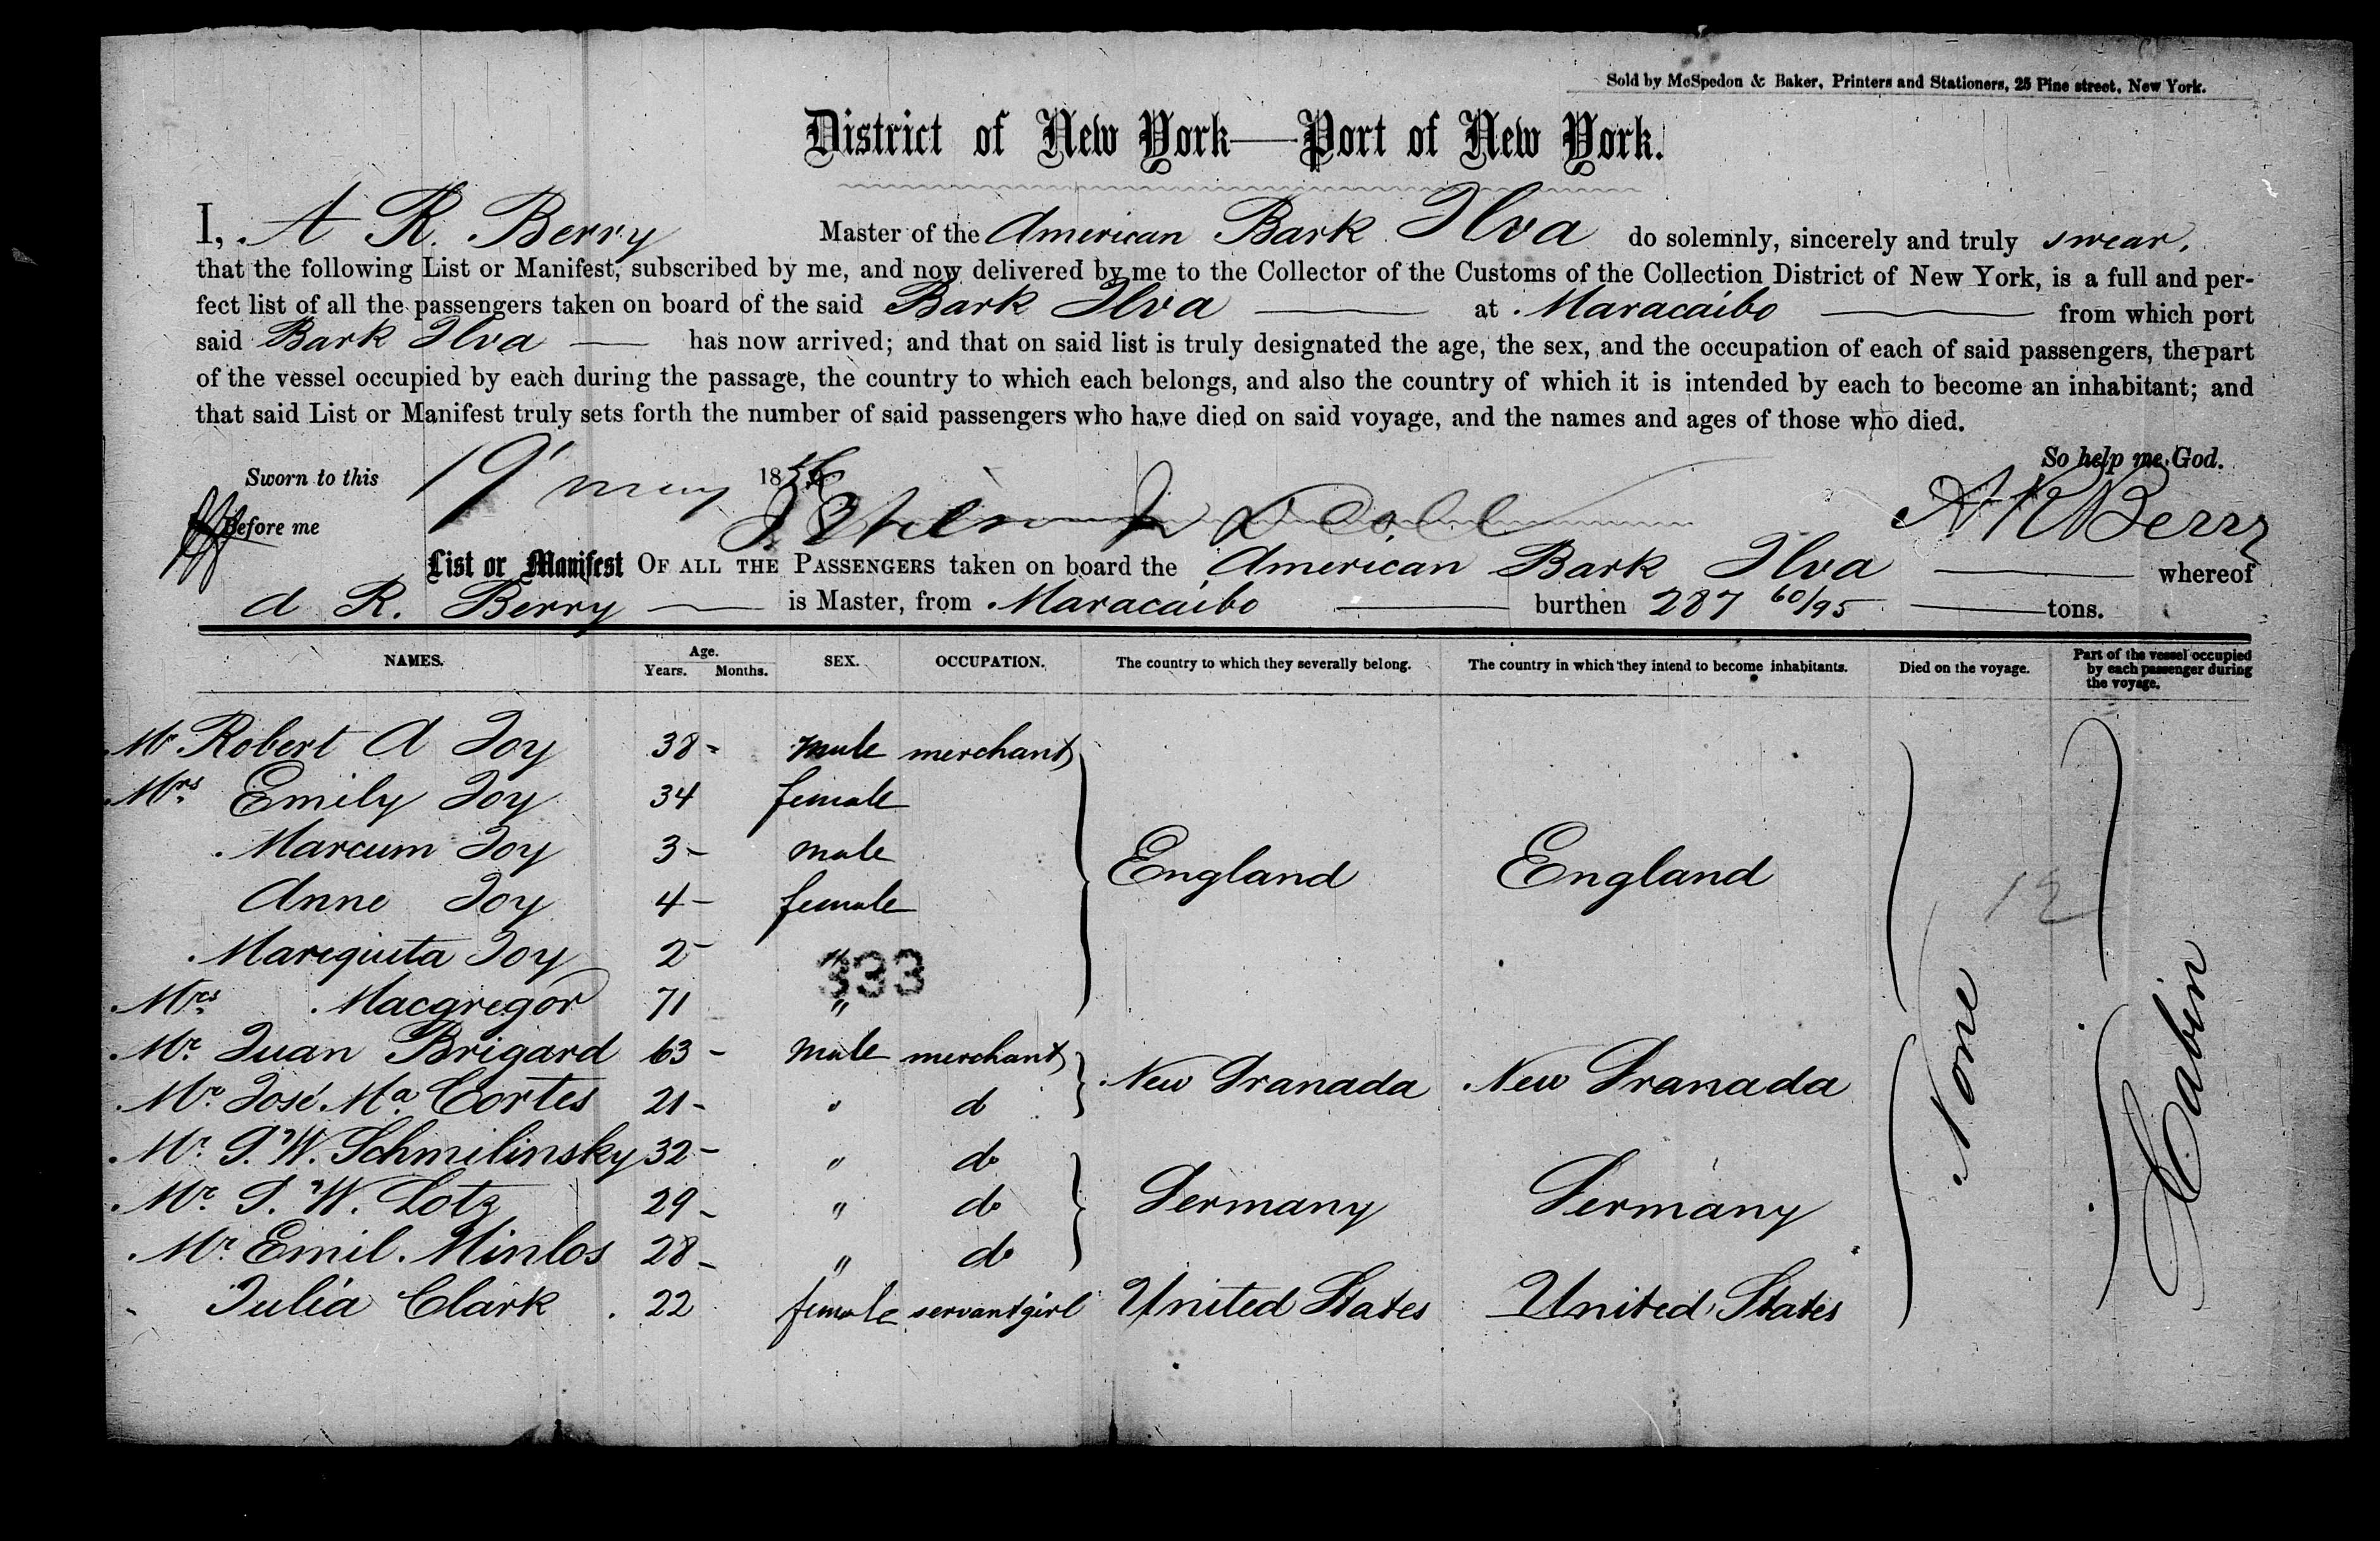 Sold by McSpedon & Baker, Printers and Stationers, 25 Pine street, New York.
District of New York—Port of New York.
I, A R. Berry Master of the American Bark Ilva do solemnly, sincerely and truly swear,
that the following List or Manifest, subscribed by me, and now delivered by me to the Collector of the Customs of the Collection District of New York, is a full and per-
fect list of all the passengers taken on board of the said Bark Ilva at Maracaibo from which port
said Bark Ilva has now arrived; and that on said list is truly designated the age, the sex, and the occupation of each of said passengers, the part
of the vessel occupied by each during the passage, the country to which each belongs, and also the country of which it is intended by each to become an inhabitant; and
that said List or Manifest truly sets forth the number of said passengers who have died on said voyage, and the names and ages of those who died.
So help me God.
Sworn to this 19 may 1856
Before me A R Berry
List or Manifest OF ALL THE PASSENGERS taken on board the American Bark Ilva whereof
A R. Berry is Master, from Maracaibo burthen 287 60/95 tons.
NAMES. Age. Years. Months. SEX. OCCUPATION. The country to which they severally belong. The country in which they intend to become inhabitants. Died on the voyage. Part of the vessel occupied by each passenger during the voyage.
Mr Robert A Joy 38 - male merchant
Mrs Emily Joy 34 female
Marcum Joy 3 - male
Anne Joy 4 - female
England England
12
Mariquita Joy 2 - "
333
Mrs Macgregor 71 "
Mr Juan Brigard 63 - male merchant
New Granada New Granada
Mr José Ma. Cortes 21 - " d
Mr G. W. Schmilinsky 32 - " do
Mr G. W. Lotz 29 - " do
Germany Germany
Mr Emil Minlos 28 - " do
Julia Clark 22 female servant girl United States United States
None
Cabin